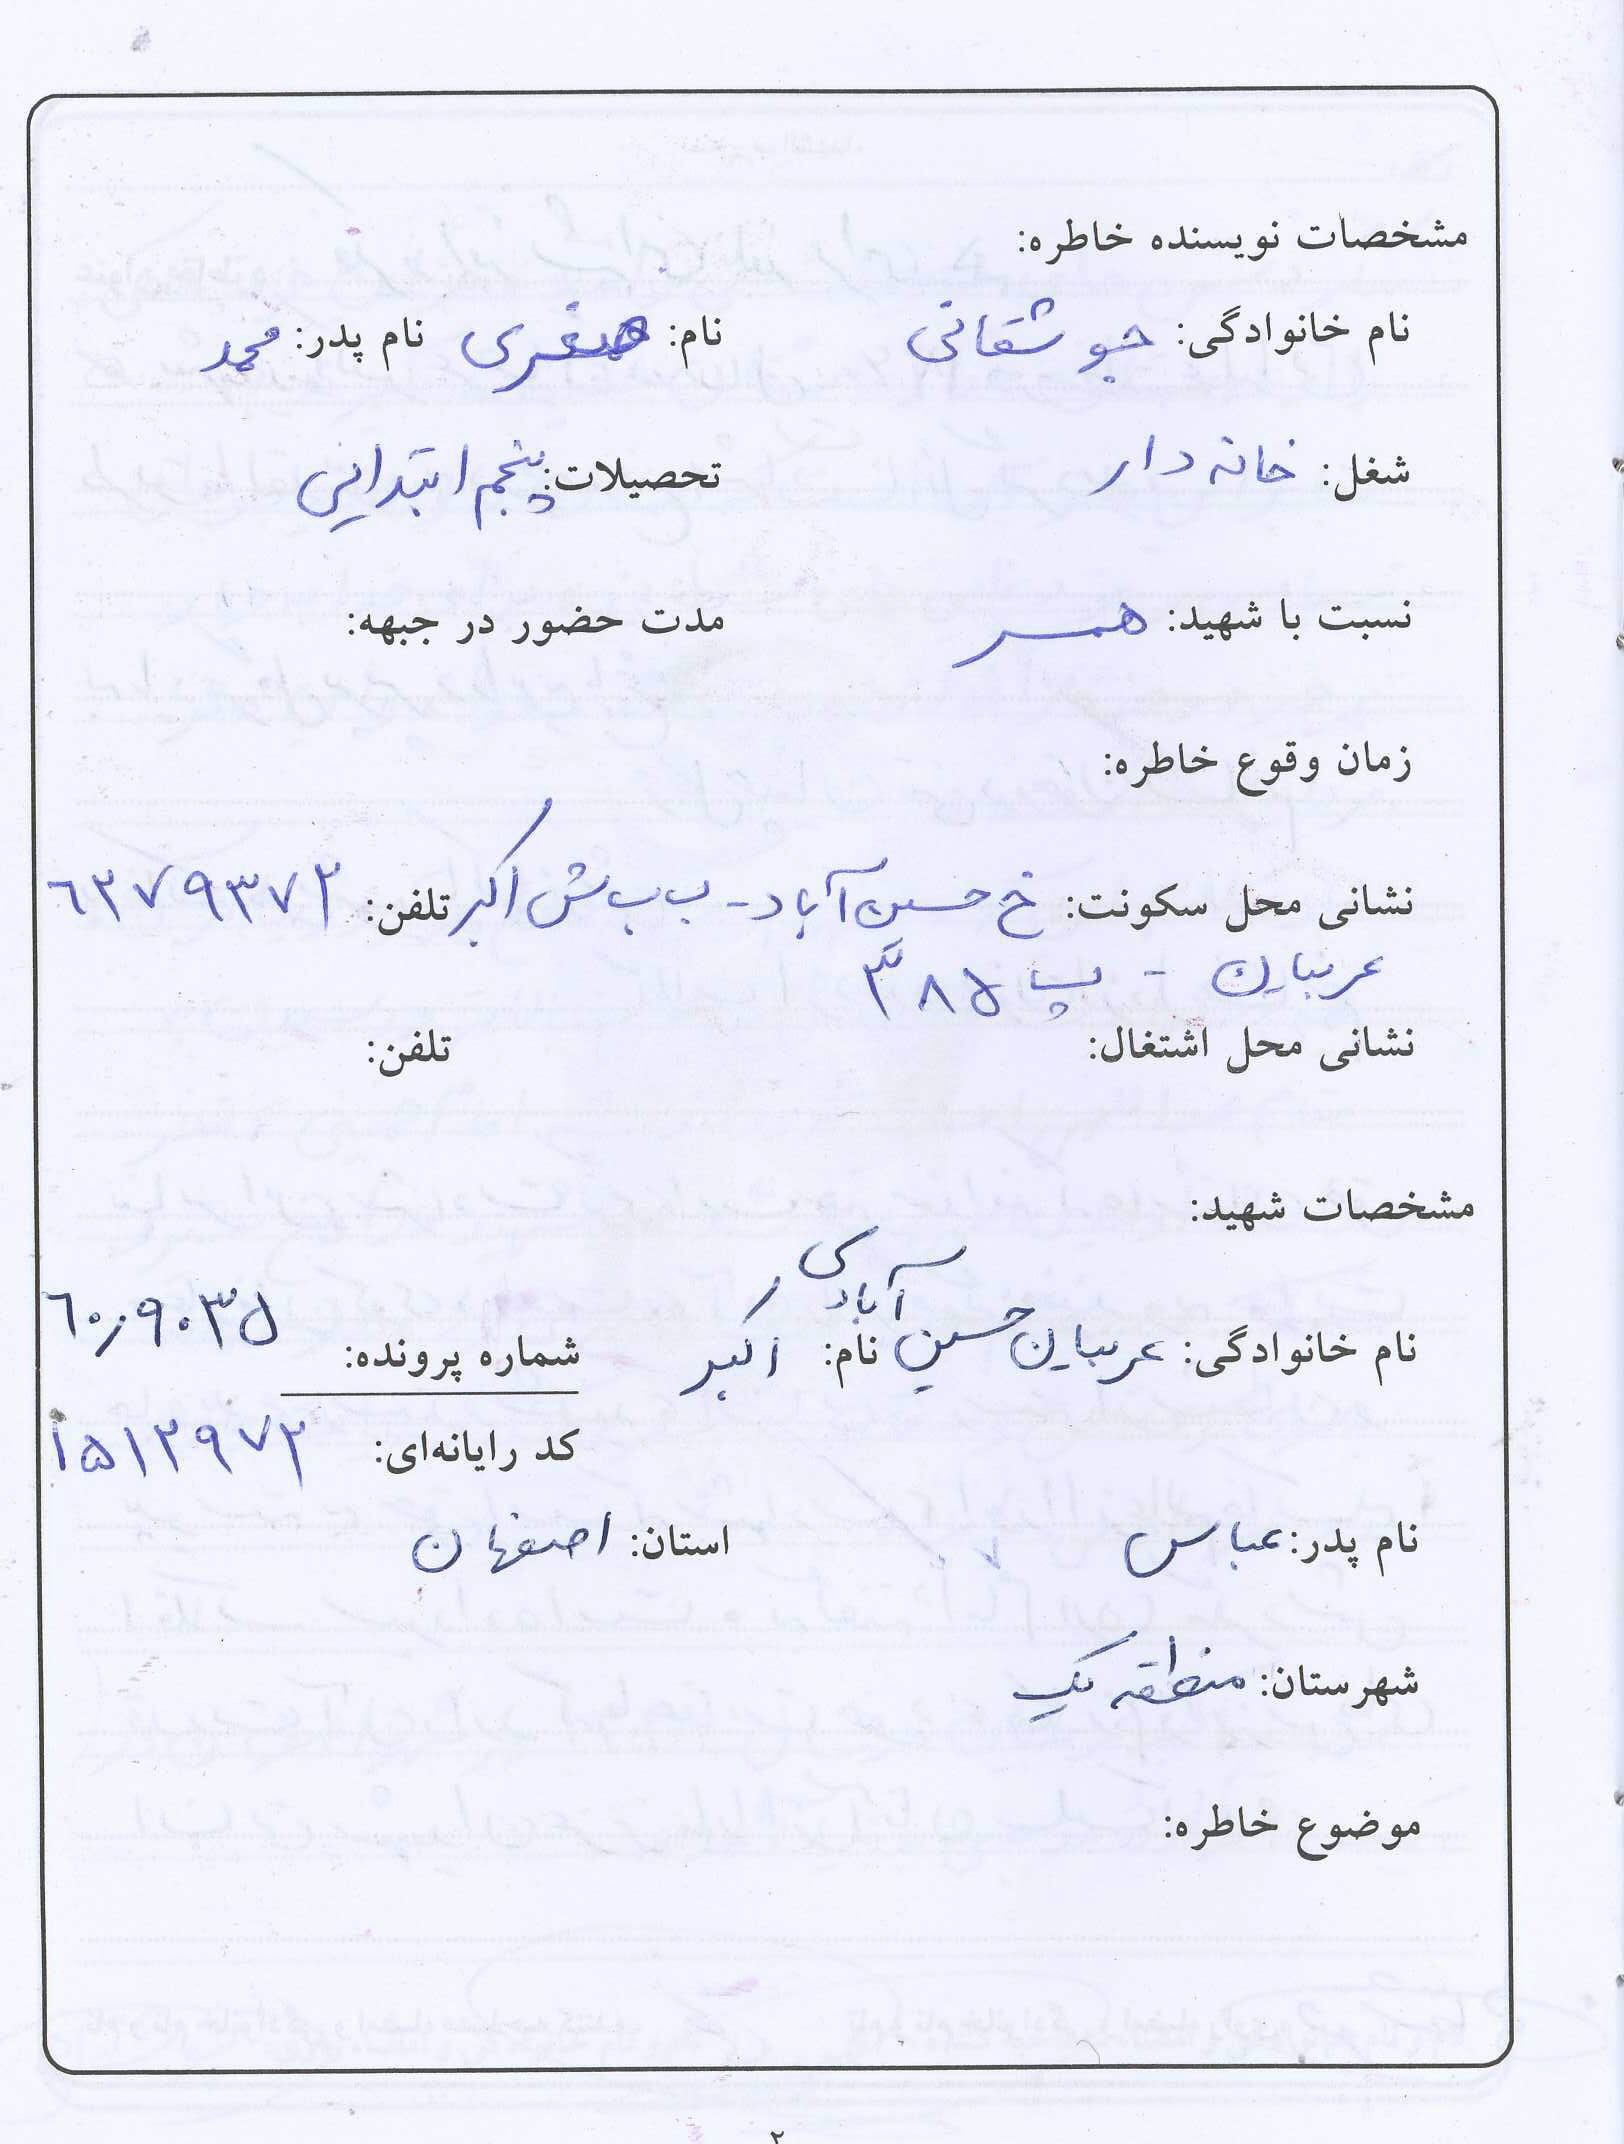 مشخصات نویسنده خاطره:
نام خانوادگی: جوشقانی نام: صغری نام پدر: محمد
شغل: خانه دار تحصیلات: پنجم ابتدایی
نسبت با شهید: همسر مدت حضور در جبهه:
زمان وقوع خاطره:
نشانی محل سکونت: خ حسین آباد - ب ب ش اکبر تلفن: ٦٢٧٩٣٧٢
عربیان - پ ٣٨٥
نشانی محل اشتغال: تلفن:
مشخصات شهید:
نام خانوادگی: عربیان حسین آبادی نام: اکبر شماره پرونده: ٦٠٫٩٠٣٥
کد رایانه‌ای: ١٥١٢٩٧٢
نام پدر: عباس استان: اصفهان
شهرستان: منطقه یک
موضوع خاطره:
۲